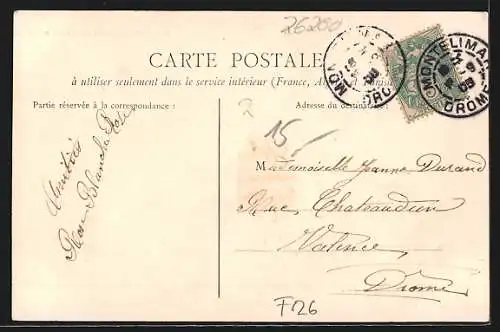 26200
CARTE POSTALE
à utiliser seulement dans le service intérieur (France,
Partie réservée à la correspondance :
Adresse du destinataire :
MONTELIMAR
DROME
Amitiés
Rose Blanche
15
Mademoiselle Jeanne Durand
Rue Chateaudun
Valence
Drome
F26